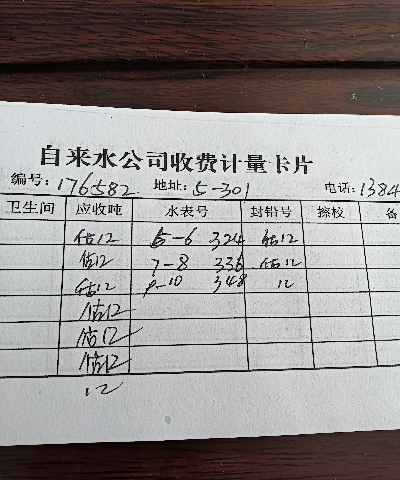 自来水公司收费计量卡片
编号: 176582 地址: 5-301 电话: 1384
卫生间 应收吨 水表号 封铅号 擦校 备
估12 5-6 324 估12
估12 7-8 336 估12
估12 9-10 348 12
估12
估12
估12
12